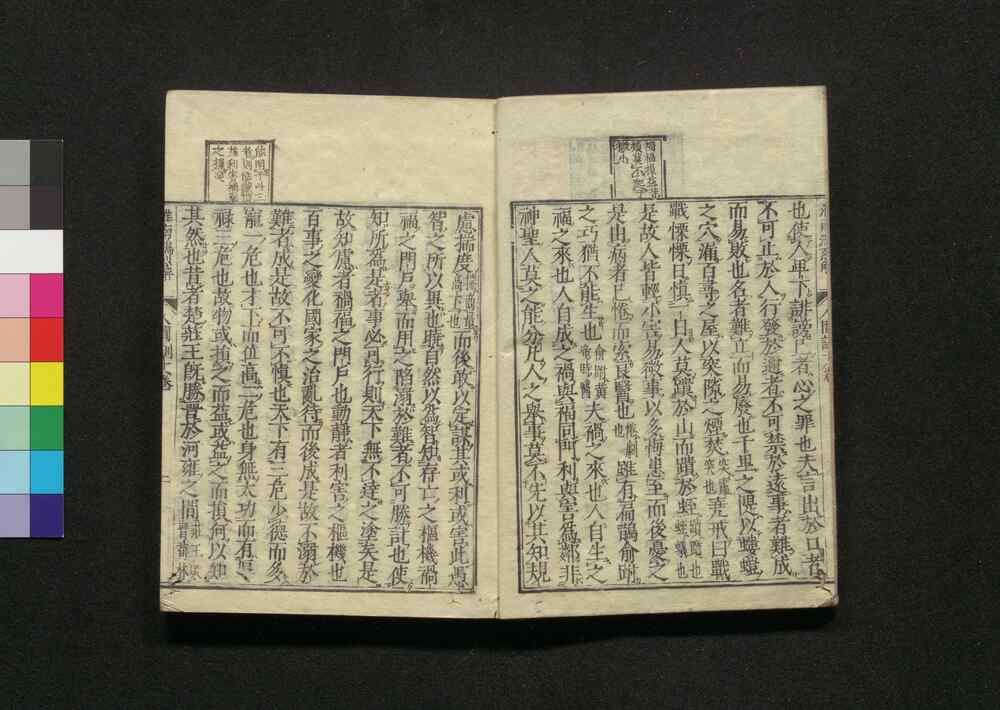 也使人卑下誹謗己者心之罪也夫言出於口者
不可止於人行發於邇者不可禁於遠事者難成
而易敗也名者難立而易廢也千里之隄以螻螘
之穴漏百尋之屋以突隙之煙焚突竈突也堯戒曰戰
戰慄慄日愼一日人莫蹪於山而蹪於蛭蹪躓也蛭蟻也
是故人皆輕小害易微事以多悔患至而後憂之
是由病者已惓而索良醫也惓劇也雖有扁鵲俞跗
之巧猶不能生也俞跗黃帝時醫夫禍之來也人自生之
福之來也人自成之禍與福同門利與害爲鄰非
神聖人莫之能分凡人之舉事莫不先以其知規
慮揣度揣商量高下也而後敢以定謀其或利或害此愚
智之所以異也曉自然以爲智知存亡之樞機禍
福之門戶舉而用之陷溺於難者不可勝計也使
知所爲是者事必可行則天下無不達之塗矣是
故知慮者禍福之門戶也動靜者利害之樞機也
百事之變化國家之治亂待而後成是故不溺於
難者成是故不可不愼也天下有三危少德而多
寵一危也才下而位高二危也身無大功而有厚
祿三危也故物或損之而益或益之而損何以知
其然也昔者楚莊王旣勝晉於河雍之間